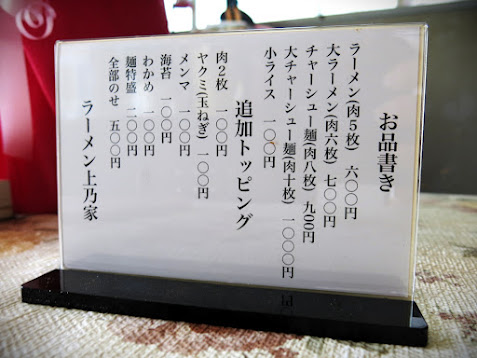 お品書き
ラーメン(肉5枚) 六〇〇円
大ラーメン(肉六枚) 七〇〇円
チャーシュー麺(肉八枚) 九00円
大チャーシュー麺(肉十枚) 一〇〇〇円
小ライス 一〇〇円
追加トッピング
肉2枚 一〇〇円
ヤクミ(玉ねぎ) 一〇〇円
メンマ 一〇〇円
海苔 一〇〇円
わかめ 一〇〇円
麺特盛 二〇〇円
全部のせ 五〇〇円
ラーメン上乃家